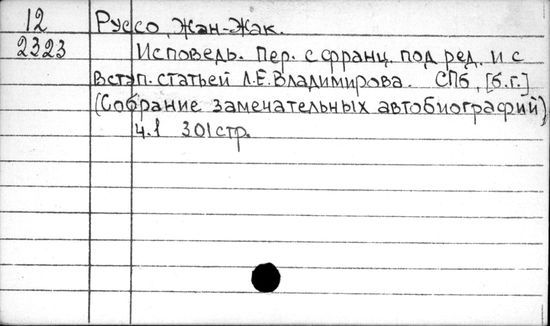 12 Руссо, Жан-Жак.
2323 Исповедь. Пер. с франц. под ред. и с
вступ. статьей Л.Е.Владимирова. СПб, [б.г.]
(Собрание замечательных автобиографий)
ч.1 301стр.